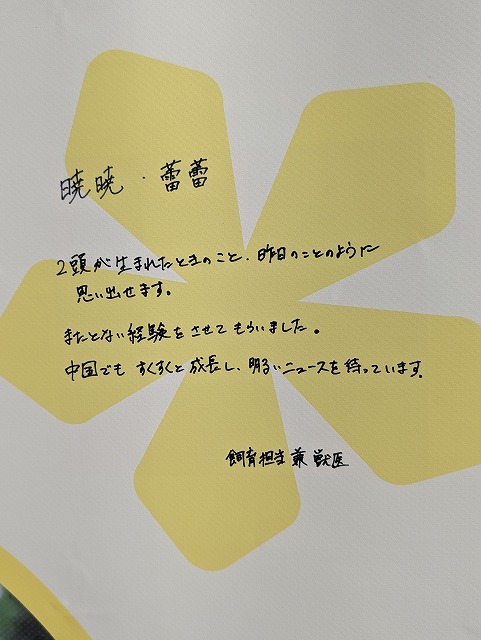 暁暁・蕾蕾
2頭が生まれたときのこと、昨日のことのように
思い出せます。
またとない経験をさせてもらいました。
中国でもすくすくと成長し、明るいニュースを待っています。
飼育担当兼獣医